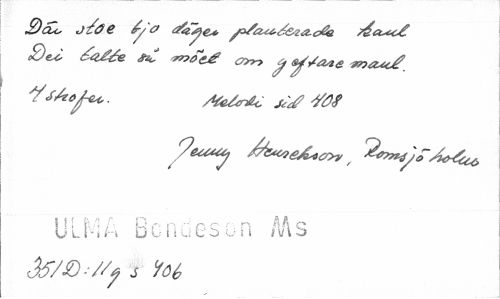 Där stoe tjo däger planterada kaul
Dei talte så möet om geftare maul.
7 strofer. Melodi sid 408
Jenny Henrekson, Romsjöholm
ULMA Bondeson Ms
351D:11 g s 406